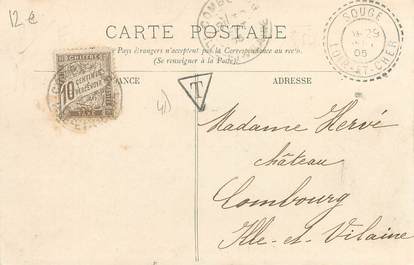 12 €
CARTE POSTALE
Pays étrangers n'acceptent pas la Correspondance au recto.
(Se renseigner à la Poste)
ADRESSE
CHIFFRE
10
CENTIMES
A
PERCEVOIR
TAXE
T
SOUGÉ
29
05
LOIR-ET-CHER
Madame Hervé
château
Combourg
Ille-et-Vilaine